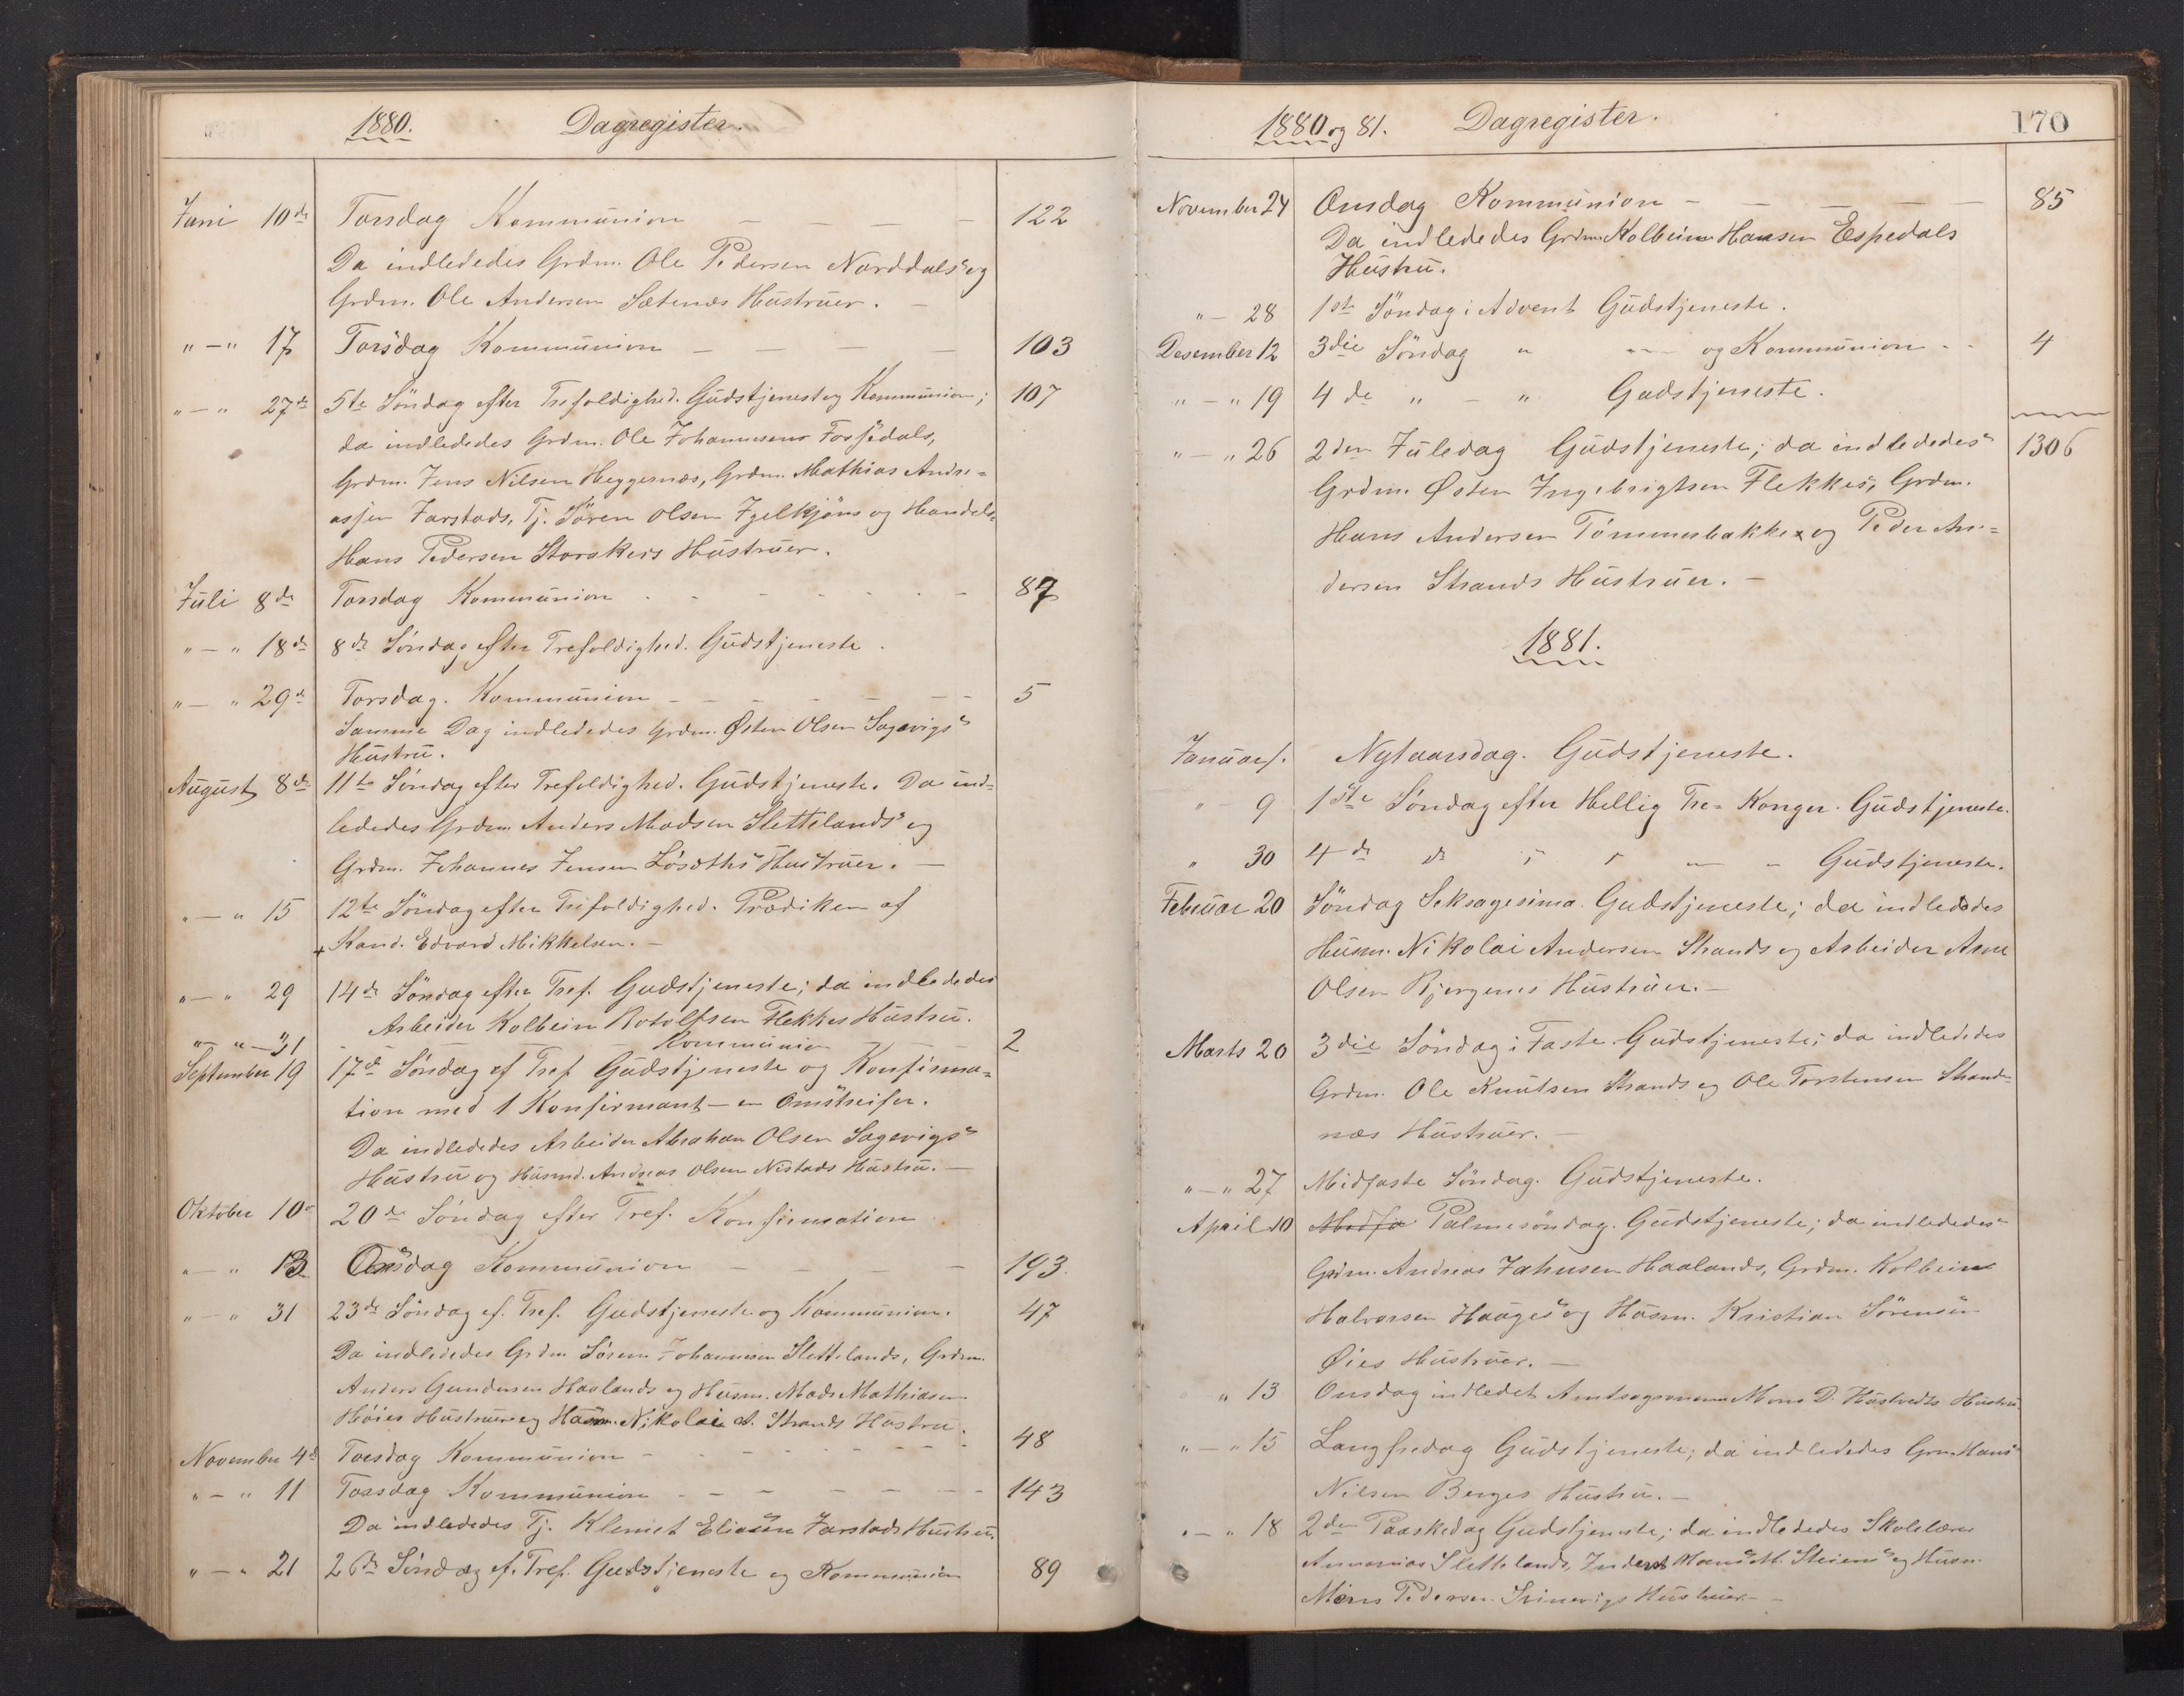 1880. Dagregister.
Juni 10de Torsdag Kommunion — — — 122
Da indlededes Grdm. Ole Pedersen Norddals og
Grdm. Ole Andersen Sætenæs Hustruer. —
" — " 17 Torsdag Kommunion — — — — 103
" — " 27de 5te Søndag efter Trefoldighed. Gudstjenest og Kommunion; 107
da indlededes Grdm. Ole Johannesens Fossedals,
Grdm. Jens Nilsen Heggernæs, Grdm. Mathias Andre=
assen Jarstads, Tj. Søren Olsen Igelkjøns og Handels.
Hans Pedersen Storakers Hustruer.
Juli 8de Torsdag Kommunion - - - - - - - 87
" — " 18de 8de Søndag efter Trefoldighed. Gudstjeneste.
" — " 29de Torsdag. Kommunion — — — — — — 5
Samme Dag indlededes Grdm. Østen Olsen Sagevigs
Hustru.
August 8de 11te Søndag efter Trefoldighed. Gudstjeneste. Da ind=
lededes Grdm. Anders Madsen Slettelands og
Grdm. Johannes Jensen Løseths Hustruer. —
" — " 15 12te Søndag efter Trefoldighed. Prædiken af
+ Kand. Edvard Mikkelsen. —
" — " 29 14de Søndag efter Tref. Gudstjeneste; da indlededes
Arbeider Kolbein Rotolfsen Flekkes Hustru.
" — " — 31 — — — Kommunion — — 2
September 19 17de Søndag ef Tref Gudstjeneste og Konfirma=
tion med 1 Konfirmant — en Omstreifer.
Da indlededes Arbeider Abraham Olsen Sagevigs
Hustru og Husmd. Andreas Olsen Nistads Hustru. —
Oktober 10de 20de Søndag efter Tref. Konfirmation
" — " 13 Onsdag Kommunion — — — 193.
" — " 31 23de Søndag ef. Tref. Gudstjeneste og Kommunion. 47
Da indlededes Grdm Søren Johannesen Slettelands, Grdm.
Anders Gundersen Haalands og Husm. Mads Mathiasen
Høies Hustruer og Husm. Nikolai A. Strands Hustru.
November 4de Torsdag Kommunion — - - - - - - 48
" — " 11 Torsdag Kommunion - - - - - - - 143
Da indlededes Tj. Klemet Eliasen Jarstads Hustru.
" — " 21 26de Søndag ef. Tref. Gudstjeneste og Kommunion 89
1880 og 81. Dagregister. 170
November 24 Onsdag Kommunion — — — — — 85
Da indlededes Grdm Kolbein Hansen Espedals
Hustru.
" — 28 1ste Søndag i Advent Gudstjeneste.
Desember 12 3die Søndag " " — og Kommunion - - 4
" — " 19 4de " — " Gudstjeneste.
" — " 26 2den Juledag Gudstjeneste; da indlededes 1306
Grdm. Østen Ingebrigtsen Flekkes, Grdm.
Hans Andersen Tømmerbakke og Peder An=
dersen Strands Hustruer. —
1881.
Januar 1. Nytaarsdag. Gudstjeneste.
" — 9 1ste Søndag efter Hellig Tre= Konger. Gudstjeneste.
" 30 4de " " " — " Gudstjeneste.
Februar 20 Søndag Seksagesima. Gudstjeneste; da indlededes
Husm. Nikolai Andersen Strands og Arbeider Arne
Olsen Bjergenes Hustruer. —
Marts 20 3die Søndag i Faste Gudstjeneste; da indlededes
Grdm. Ole Knutsen Strands og Ole Torstensen Strand=
næs Hustruer. —
" — " 27 Midfaste Søndag. Gudstjeneste.
April 10 Medfa Palmesøndag. Gudstjeneste; da indlededes
Grdm. Andreas Jahnsen Haalands, Grdm. Kolbein
Halvorsen Hauges og Husm. Kristian Sørensen
Øies Hustruer. —
" 13 Onsdag indledet Mons D. Hustru
" — " 15 Langfredag Gudstjeneste; da indlededes Grm. Hans
Nilsen Berges Hustru. —
" — " 18 2den Paaskedag Gudstjeneste; da indlededes Skolelærer
Annanias Slettelands, Inderst Hans M. Steiens og Husm.
Mons Pedersen Svinevigs Hustruer. —